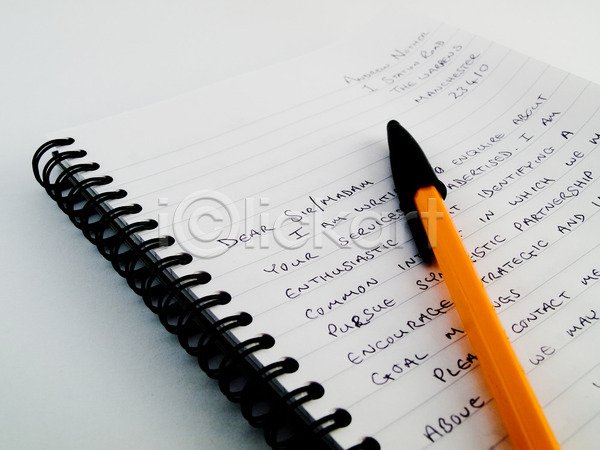 ANDREW NOTHER
1 STATION ROAD
THE WARRENS
MANCHESTER
23.4.10
DEAR SIR/MADAM
I AM WRITING ENQUIRE ABOUT
YOUR SERVICES I AM
ENTHUSIASTIC IDENTIFYING A
COMMON IN WHICH WE
PURSUE PARTNERSHIP
ENCOURAGE STRATEGIC AND
GOAL
CONTACT ME
ABOVE WE MAY
iclickart